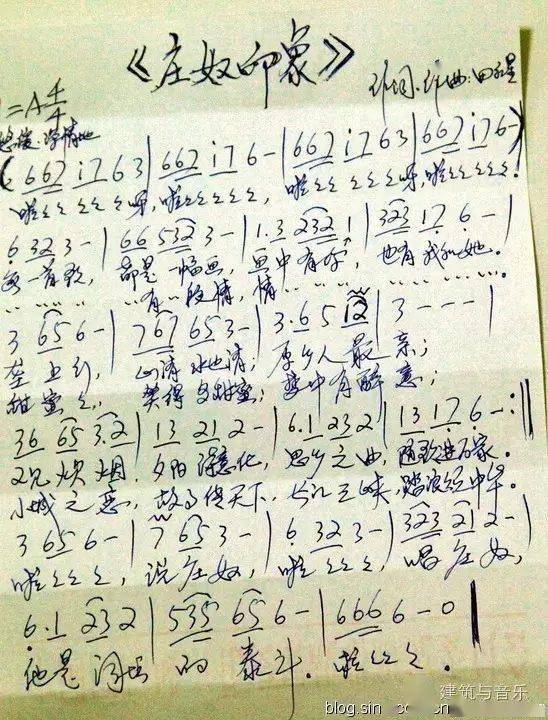 《庄奴印象》
1=A4/4
作词.作曲:田
深情地
(667 i763|667 i76-|667 i763|667 i76-)
啦 呀,啦 ,啦 呀,啦 .
6 323-|66 5323-|1.3 232 1|323 17 6-|
每一首歌, 都是一幅画, 画中有你, 也有我和她.
有一段情, 情
3 656-|767 653-|3.65 12|3---|
垄上行, 山清水也清; 原乡人最亲;
甜蜜 , 笑得多甜蜜; 梦中有 意;
36 65 3.2|13 212-|6.1 232|13 17 6-:||
又见炊烟, 夕阳 化, 思乡之曲, 随歌进万家.
小城之恋, 故事传天下, 长江三峡, 踏浪 中华.
3 656-|7 653-|6 323-|323 212-|
啦 , 说庄奴, 啦 , 唱庄奴,
6.1 232|535 656-|6666-0|
他是词坛 的 泰斗. 啦 .
建筑与音乐
blog.sin